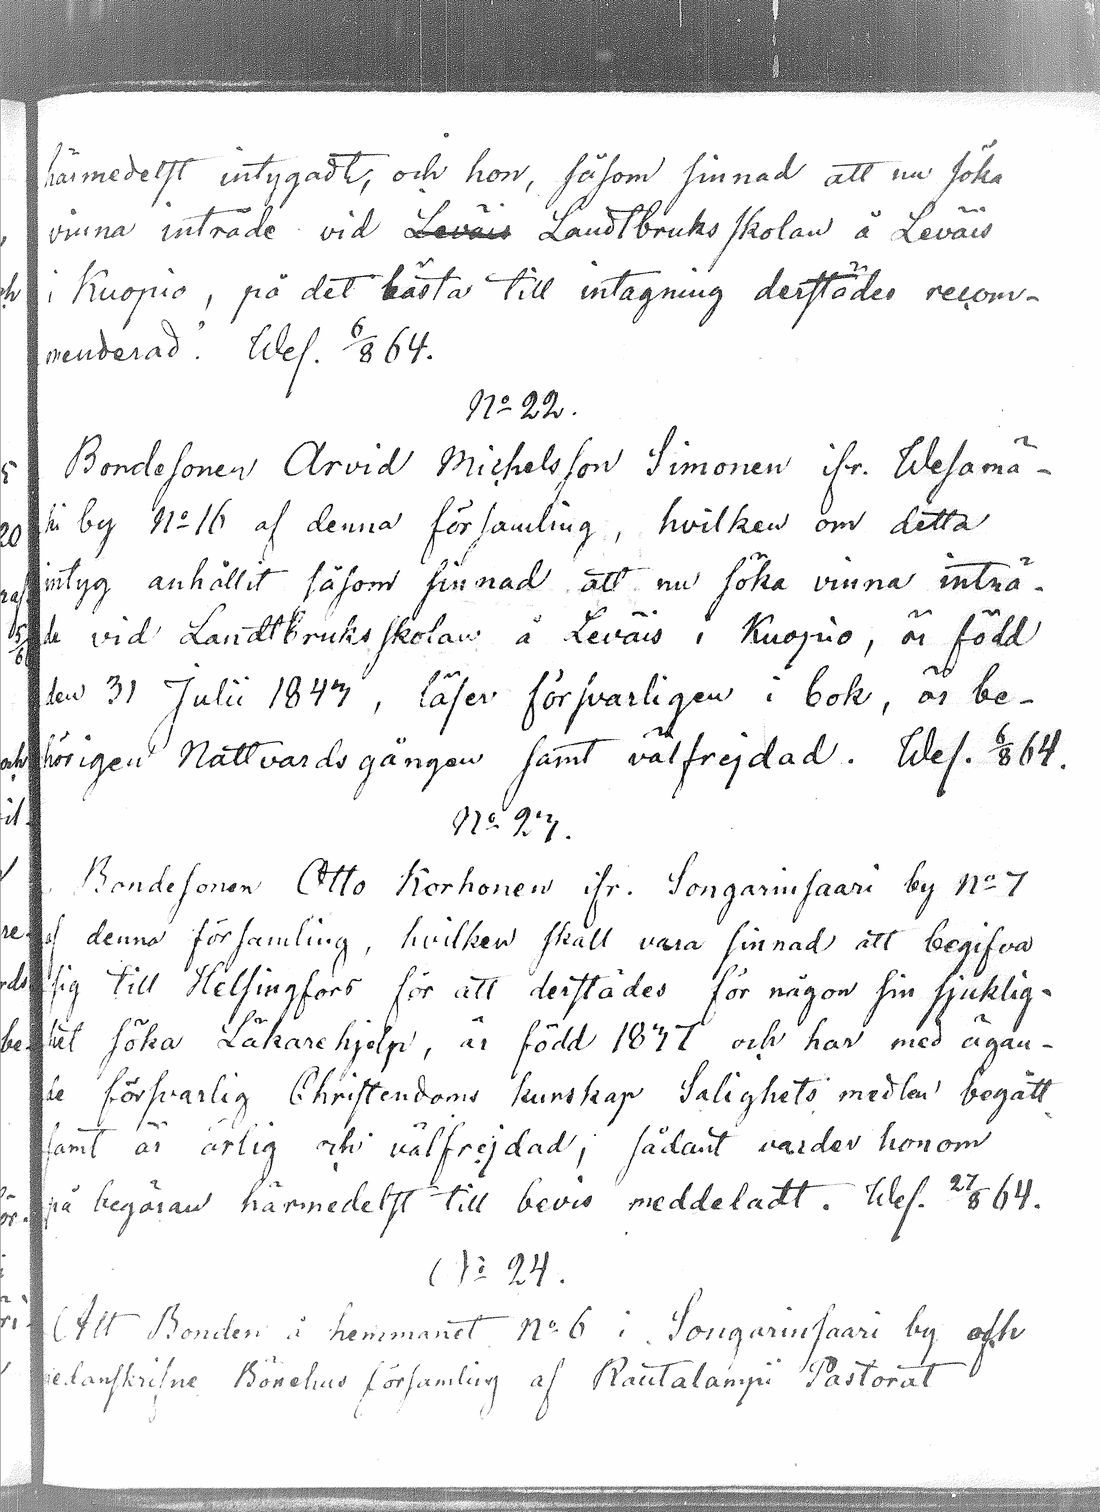 härmedelst intygadt, och hon, såsom sinnad att nu söka
vinna inträde vid Leväis Landtbruksskolan å Leväis
i Kuopio, på det bästa till intagning derstädes recom-
menderad. Wes. 6/8 64.
No 22.
Bondesonen Arvid Michelsson Simonen ifr. Wesamä-
ki by No 16 af denna församling, hvilken om detta
intyg anhållit såsom sinnad att nu söka vinna inträ-
de vid Landtbruksskolan å Leväis i Kuopio, är född
den 31 Julii 1843, läser försvarligen i bok, är be-
hörigen Nattvardsgången samt välfrejdad. Wes. 6/8 64.
No 23.
Bondesonen Otto Korhonen ifr. Songarinsaari by No 7
af denna församling, hvilken skall vara sinnad att begifva
sig till Helsingfors för att derstädes för någon sin sjuklig-
het söka Läkarehjelp, är född 1837 och har med ägan-
de försvarlig Christendoms kunskap Salighets medlen begått
samt är ärlig och välfrejdad; sådant varder honom
på begäran härmedelst till bevis meddeladt. Wes. 27/8 64.
No 24.
Att Bonden å hemmanet No 6 i Songarinsaari by och
nedanskrifne Bönehus församling af Rautalampi Pastorat